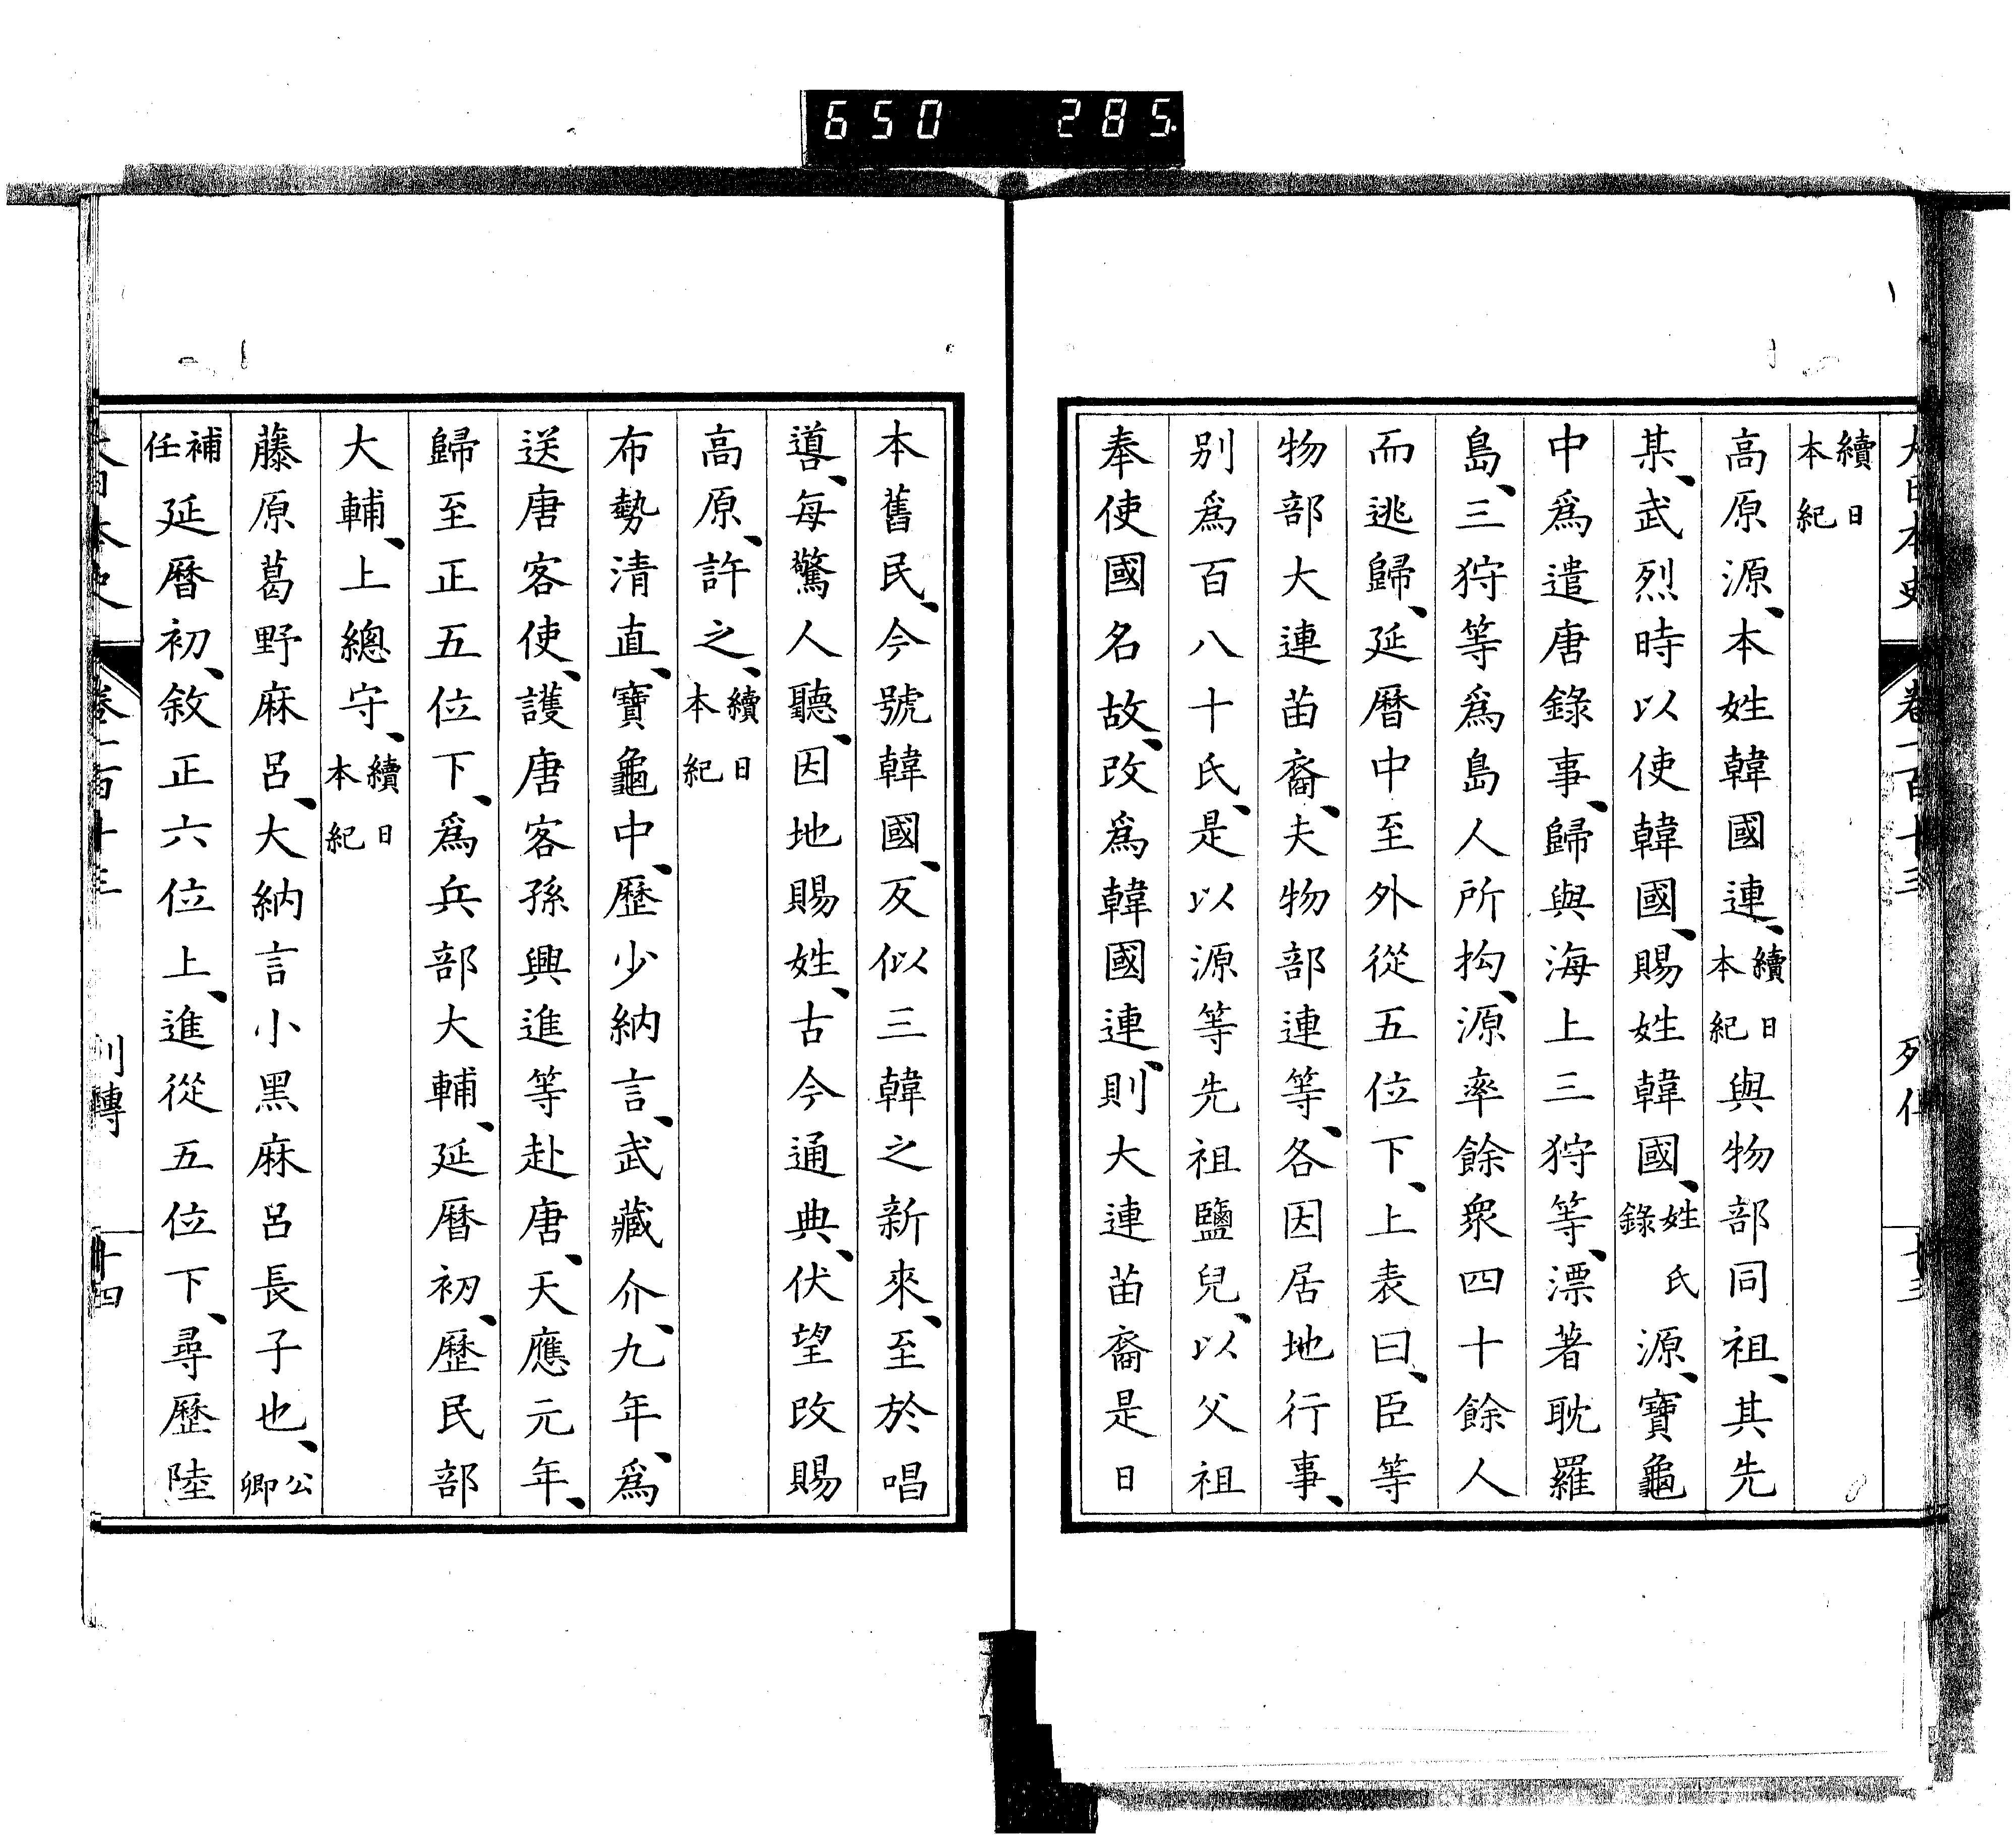 650 285
大日本史 卷一百十三 列傳 十三
續日本紀
高原源、本姓韓國連、續日本紀與物部同祖、其先
某、武烈時以使韓國、賜姓韓國、姓氏錄源、寶龜
中爲遣唐錄事、歸與海上三狩等、漂著耽羅
島、三狩等爲島人所拘、源率餘衆四十餘人
而逃歸、延曆中至外從五位下、上表曰、臣等
物部大連苗裔、夫物部連等、各因居地行事、
別爲百八十氏、是以源等先祖鹽兒、以父祖
奉使國名故、改爲韓國連、則大連苗裔是日
本舊民、今號韓國、反似三韓之新來、至於唱
導、每驚人聽、因地賜姓、古今通典、伏望改賜
高原、許之、續日本紀
布勢清直、寶龜中、歷少納言、武藏介、九年、爲
送唐客使、護唐客孫興進等赴唐、天應元年、
歸至正五位下、爲兵部大輔、延曆初、歷民部
大輔、上總守、續日本紀
藤原葛野麻呂、大納言小黑麻呂長子也、公卿
補任延曆初、敘正六位上、進從五位下、尋歷陸
大日本史 卷一百十三 列傳 十四